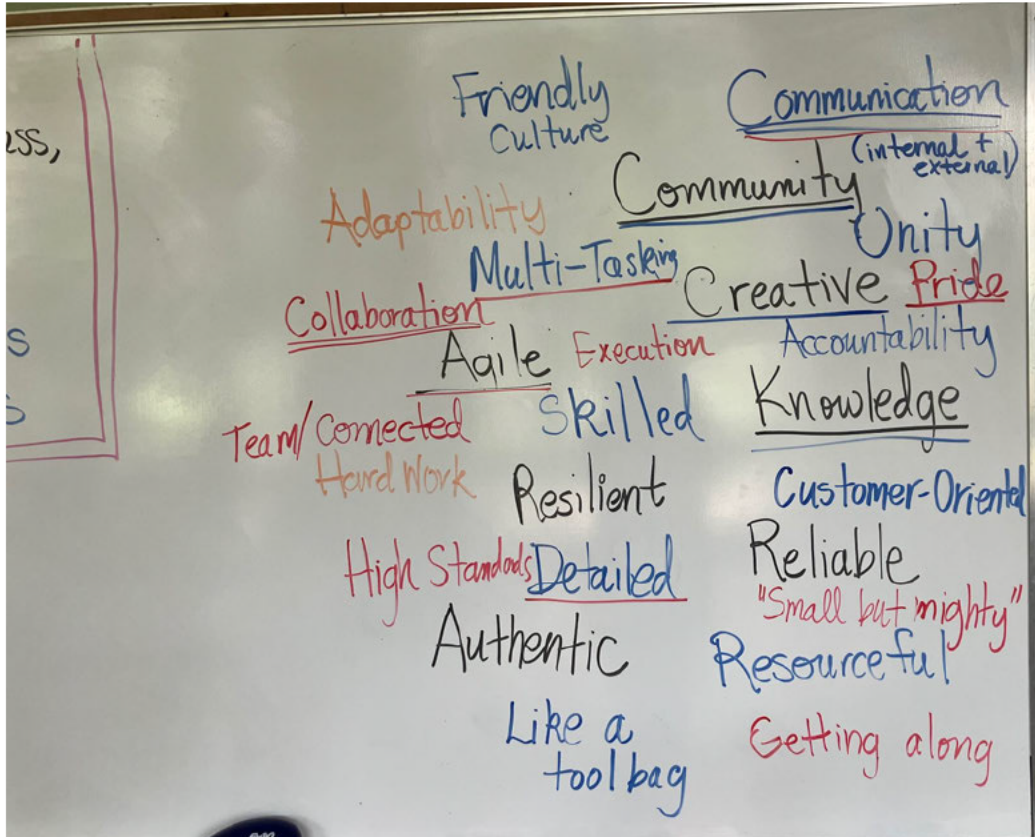 ess,
s
s
Friendly
Culture
Communication
(internal +
external)
Community
Adaptability
Unity
Multi-Tasking
Creative Pride
Collaboration
Accountability
Agile Execution
Knowledge
Skilled
Team/Connected
Hard Work
Resilient
Customer-Oriented
High Standards Detailed
Reliable
"Small but mighty"
Authentic
Resourceful
Like a
toolbag
Getting along